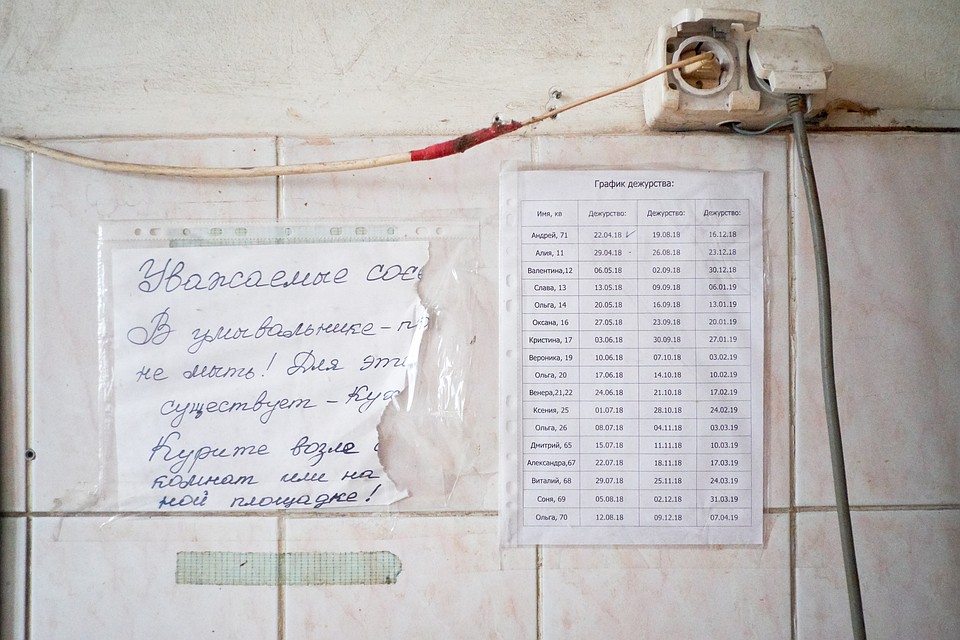 Уважаемые сосе
В умывальнике – п
не мыть! Для эти
существует – Кух
Курите возле
комнат или на
ной площадке!
График дежурства:
Имя, кв Дежурство: Дежурство: Дежурство:
Андрей, 71 22.04.18 19.08.18 16.12.18
Алия, 11 29.04.18 26.08.18 23.12.18
Валентина,12 06.05.18 02.09.18 30.12.18
Слава, 13 13.05.18 09.09.18 06.01.19
Ольга, 14 20.05.18 16.09.18 13.01.19
Оксана, 16 27.05.18 23.09.18 20.01.19
Кристина, 17 03.06.18 30.09.18 27.01.19
Вероника, 19 10.06.18 07.10.18 03.02.19
Ольга, 20 17.06.18 14.10.18 10.02.19
Венера,21,22 24.06.18 21.10.18 17.02.19
Ксения, 25 01.07.18 28.10.18 24.02.19
Ольга, 26 08.07.18 04.11.18 03.03.19
Дмитрий, 65 15.07.18 11.11.18 10.03.19
Александра,67 22.07.18 18.11.18 17.03.19
Виталий, 68 29.07.18 25.11.18 24.03.19
Соня, 69 05.08.18 02.12.18 31.03.19
Ольга, 70 12.08.18 09.12.18 07.04.19